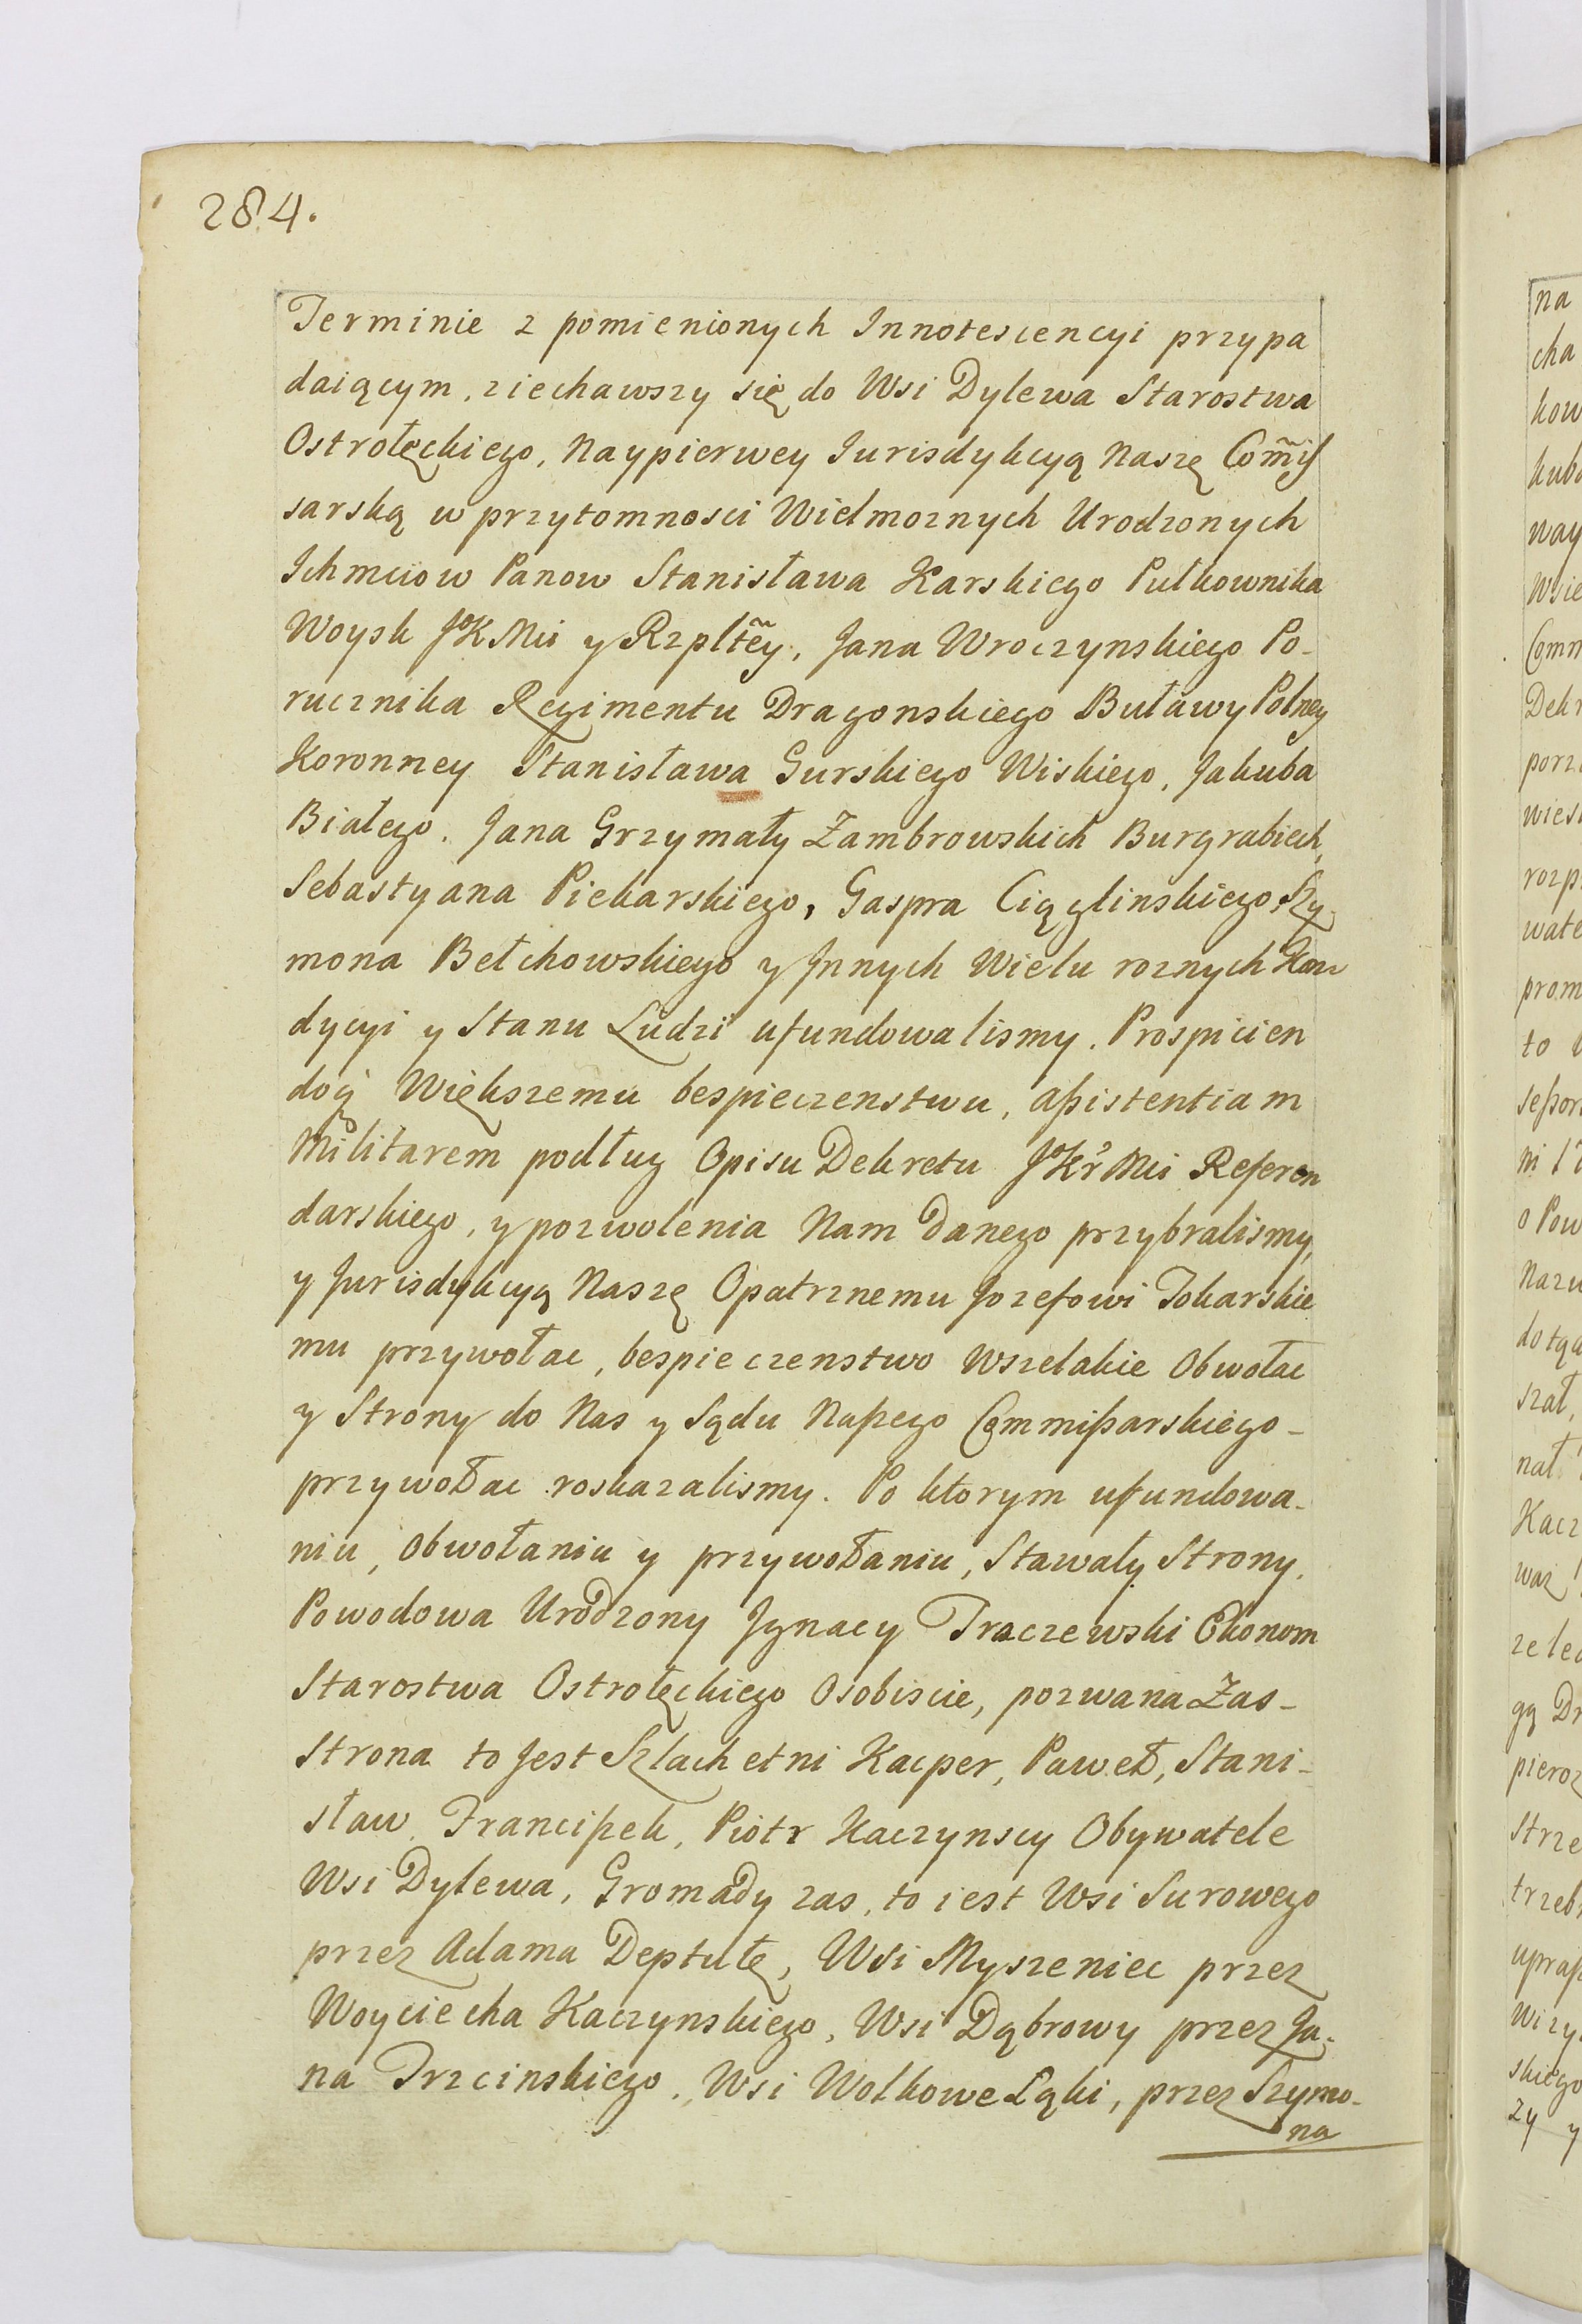 284.
Terminie z pomienionych Innotescencyi przypa
daiącym, ziechawszy się do Wsi Dylewa Starostwa
Ostrołęckiego, Naypierwey Jurisdykcyą Naszę Com̃is
sarską w przytomnosci Wielmoznych Urodzonych
Ichmciow Panow Stanisława Karskiego Pułkownika
Woysk JoKMci y Rzpltẽy, Jana Wroczynskiego Po-
rucznika Regimentu Dragonskiego Buławy Polney
Koronney Stanisława Gurskiego Wiskiego, Jakuba
Białego, Jana Grzymały Zambrowskich Burgrabiech,
Sebastyana Piekarskiego, Gaspra Ciąglinskiego, Szy-
mona Bełchowskiego y Innych Wielu roznych Kon
dycyi y Stanu Ludzi ufundowalismy. Prospicien
doq́ Większemu bespieczenstwu, aßistentiam
Militarem podług Opisu Dekretu JoKr Mci Referen
darskiego, y pozwolenia Nam Danego przybralismy,
y Jurisdykcyą Naszę Opatrznemu Jozefowi Tokarskie
mu przywołac, bespieczenstwo Wszelakie Obwołac
y Strony do Nas y Sądu Naßego Commißarskiego-
przywołac roskazalismy. Po ktorym ufundowa-
niu, Obwołaniu y przywołaniu, Stawały Strony.
Powodowa Urodzony Jgnacy Traczewski Ekonom
Starostwa Ostrołęckiego Osobiscie, pozwana Zas-
Strona to Jest Szlachetni Kacper, Paweł, Stani-
sław, Francißek, Piotr Kaczynscy Obywatele
Wsi Dylewa, Gromady zas, to iest Wsi Surowego
przez Adama Deptułę, Wsi Myszeniec przez
Woyciecha Kaczynskiego, Wsi Dąbrowy przez Ja-
na Trzcinskiego, Wsi Wolkowe Łąki, przez Szymo-
na
na
cha
kow
kub
way
Wsie
Com
Dekr
porz
wies
rozp
wate
prom
to
seßor
ni
o Pow
Nazu
szał,
nał
Kacz
waz
zele
gą Dr
pieroz
strze
trzeb
upraß
Wizy
skiego
zy y